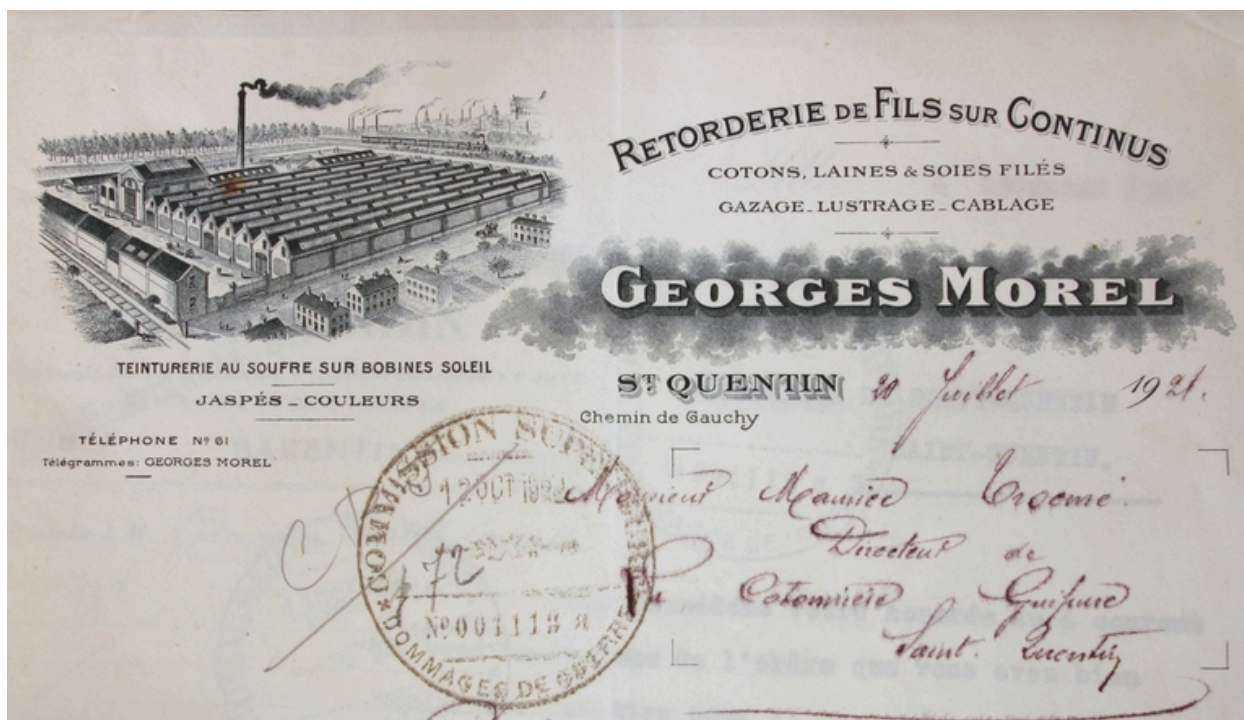 RETORDERIE DE FILS SUR CONTINUS
COTONS, LAINES & SOIES FILÉS
GAZAGE_LUSTRAGE_CABLAGE
GEORGES MOREL
TEINTURERIE AU SOUFRE SUR BOBINES SOLEIL
JASPÉS _ COULEURS
TÉLÉPHONE Nº 61
Télégrammes: GEORGES MOREL
ST QUENTIN 20 Juillet 1921.
Chemin de Gauchy
COMMISSION SUPÉRIEURE
12 OCT
72
Nº 001118
DOMMAGES DE GUERRE
Monsieur Maurice
Directeur de
la Cotonnière Guipure
Saint-Quentin